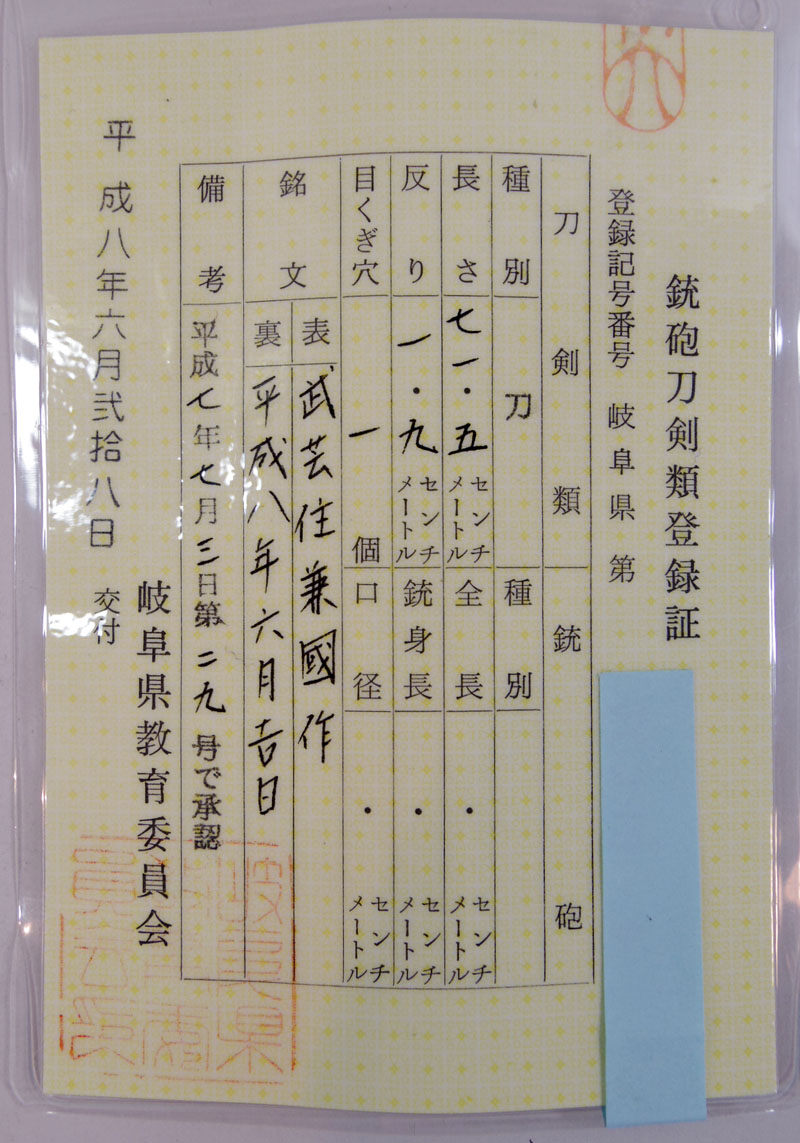 銃砲刀剣類登録証
登録記号番号 岐阜県 第
刀剣類 銃砲
種別 刀 種別
長さ 七一・五 センチメートル 全長 ・ センチメートル
反り 一・九 センチメートル 銃身長 ・ センチメートル
目くぎ穴 一個 口径 ・ センチメートル
銘文 表 武芸住兼國作
裏 平成八年六月吉日
備考 平成七年七月三日第二九号で承認
平成八年六月弐拾八日 交付
岐阜県教育委員会